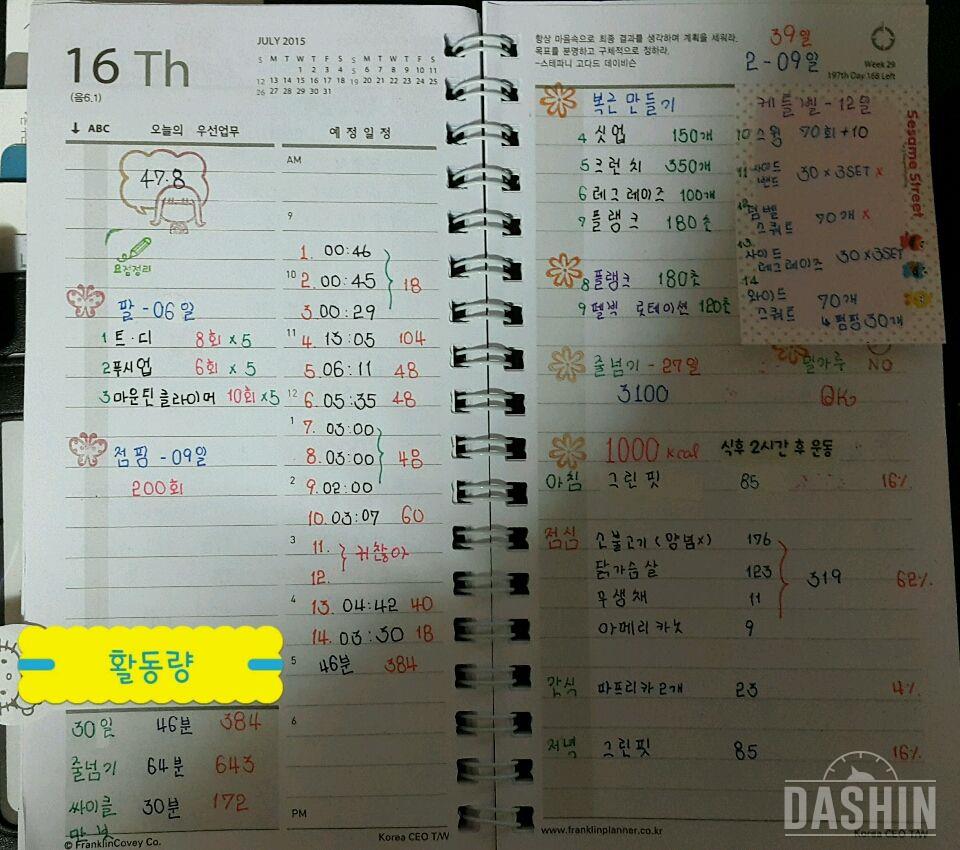 16 Th
(음6.1)
JULY 2015
S M T W T F S S M T W T F S
1 2 3 4 5 6 7 8 9 10 11
12 13 14 15 16 17 18 19 20 21 22 23 24 25
26 27 28 29 30 31
↓ ABC 오늘의 우선업무
예 정 일 정
47.8
요점정리
팔 - 06일
1 트·디 8회 × 5
2 푸시업 6회 × 5
3 마운틴 클라이머 10회 × 5
점핑 - 09일
200회
활동량
30일 46분 384
줄넘기 64분 643
싸이클 30분 172
© FranklinCovey Co.
AM
9
1. 00:46
10 2. 00:45 18
3. 00:29
11 4. 13:05 104
5. 06:11 48
12 6. 05:35 48
1 7. 03:00
8. 03:00 48
2 9. 02:00
10. 03:07 60
3 11. 귀찮아
12.
4 13. 04:42 40
14. 03:30 18
5 46분 384
6
PM
Korea CEO T/W
항상 마음속으로 최종 결과를 생각하며 계획을 세워라.
목표를 분명하고 구체적으로 청하라.
-스테파니 고다드 데이비슨
39일
2 - 09일
Week 29
197th Day 168 Left
복근 만들기
4 싯업 150개
5 크런치 350개
6 레그레이즈 100개
7 플랭크 180초
8 플랭크 180초
9 펠빅 로테이션 120초
케틀벨 - 12일
10 스윙 70회 + 10
11 사이드 밴드 30 × 3SET ×
12 덤벨 스쿼트 70개 ×
13 사이드 레그레이즈 30 × 3SET
14 와이드 스쿼트 70개
4 펌핑 30개
Sesame Street
줄넘기 - 27일
3100
밀가루 NO
OK
1000 kcal 식후 2시간 후 운동
아침 그린핏 85 16%
점심 소불고기 (양념×) 176
닭가슴살 123 319 62%
무생채 11
아메리카노 9
간식 파프리카 2개 23 4%
저녁 그린핏 85 16%
www.franklinplanner.co.kr
Korea CEO T/W
DASHIN